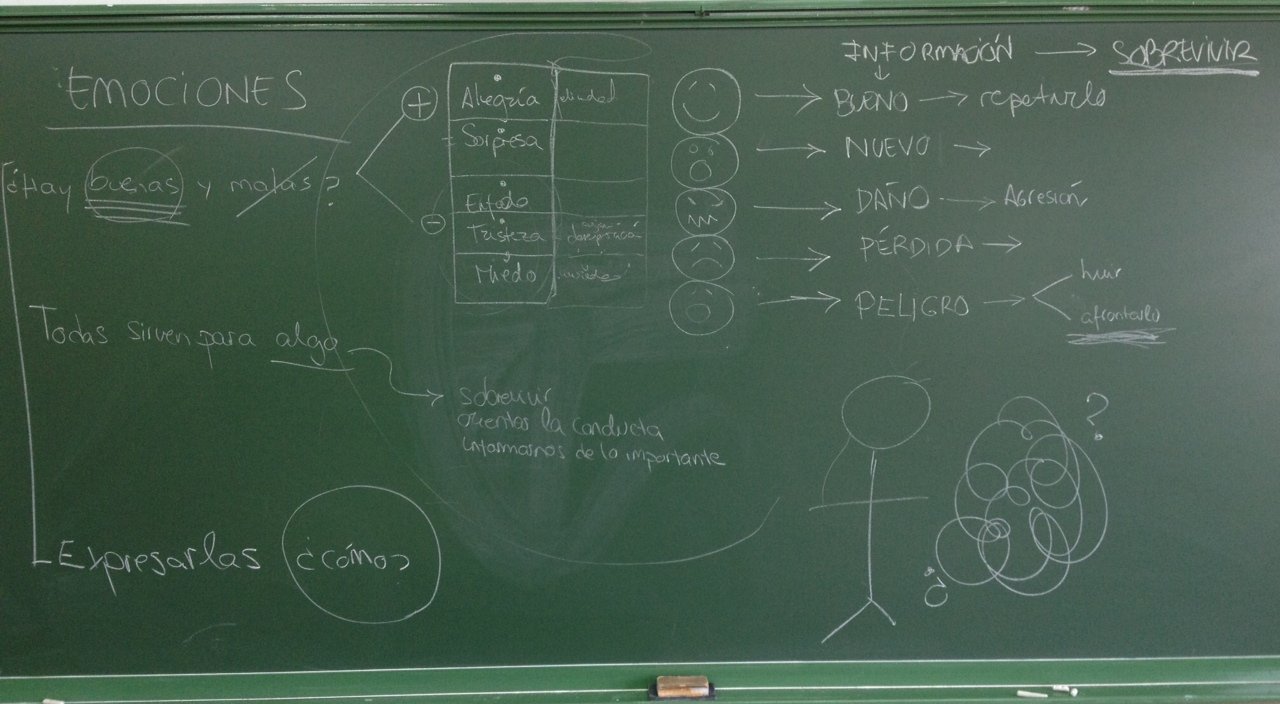 EMOCIONES
¿Hay buenas y malas?
Todas sirven para algo
sobrevivir
orientar la conducta
informarnos de lo importante
Expresarlas ¿cómo?
+
Alegría
Sorpresa
-
Enfado
Tristeza
Miedo
INFORMACIÓN → SOBREVIVIR
BUENO → repetirlo
NUEVO →
DAÑO → Agresión
PÉRDIDA →
PELIGRO →
huir
afrontarlo
?
¿